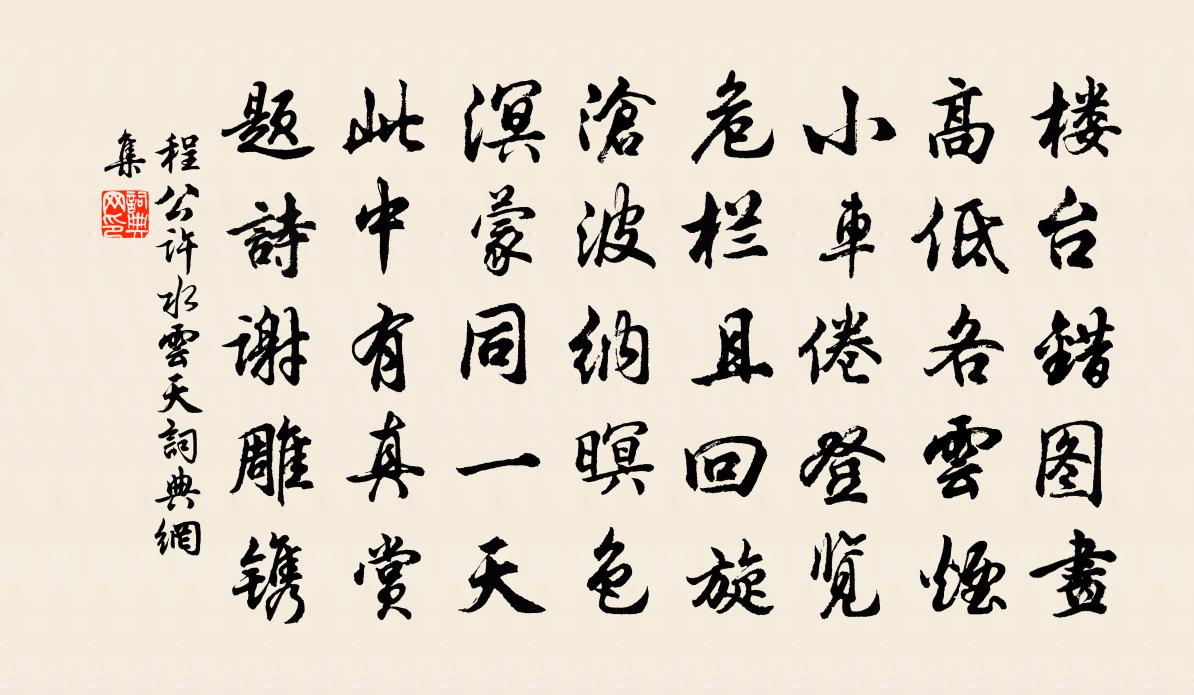 楼台錯图畫
高低各雲煙
小車倦登览
危栏且回旋
滄波纳暝色
溟蒙同一天
此中有真赏
题詩谢雕镌
程公许水雲天詞典網
集
詞典網印